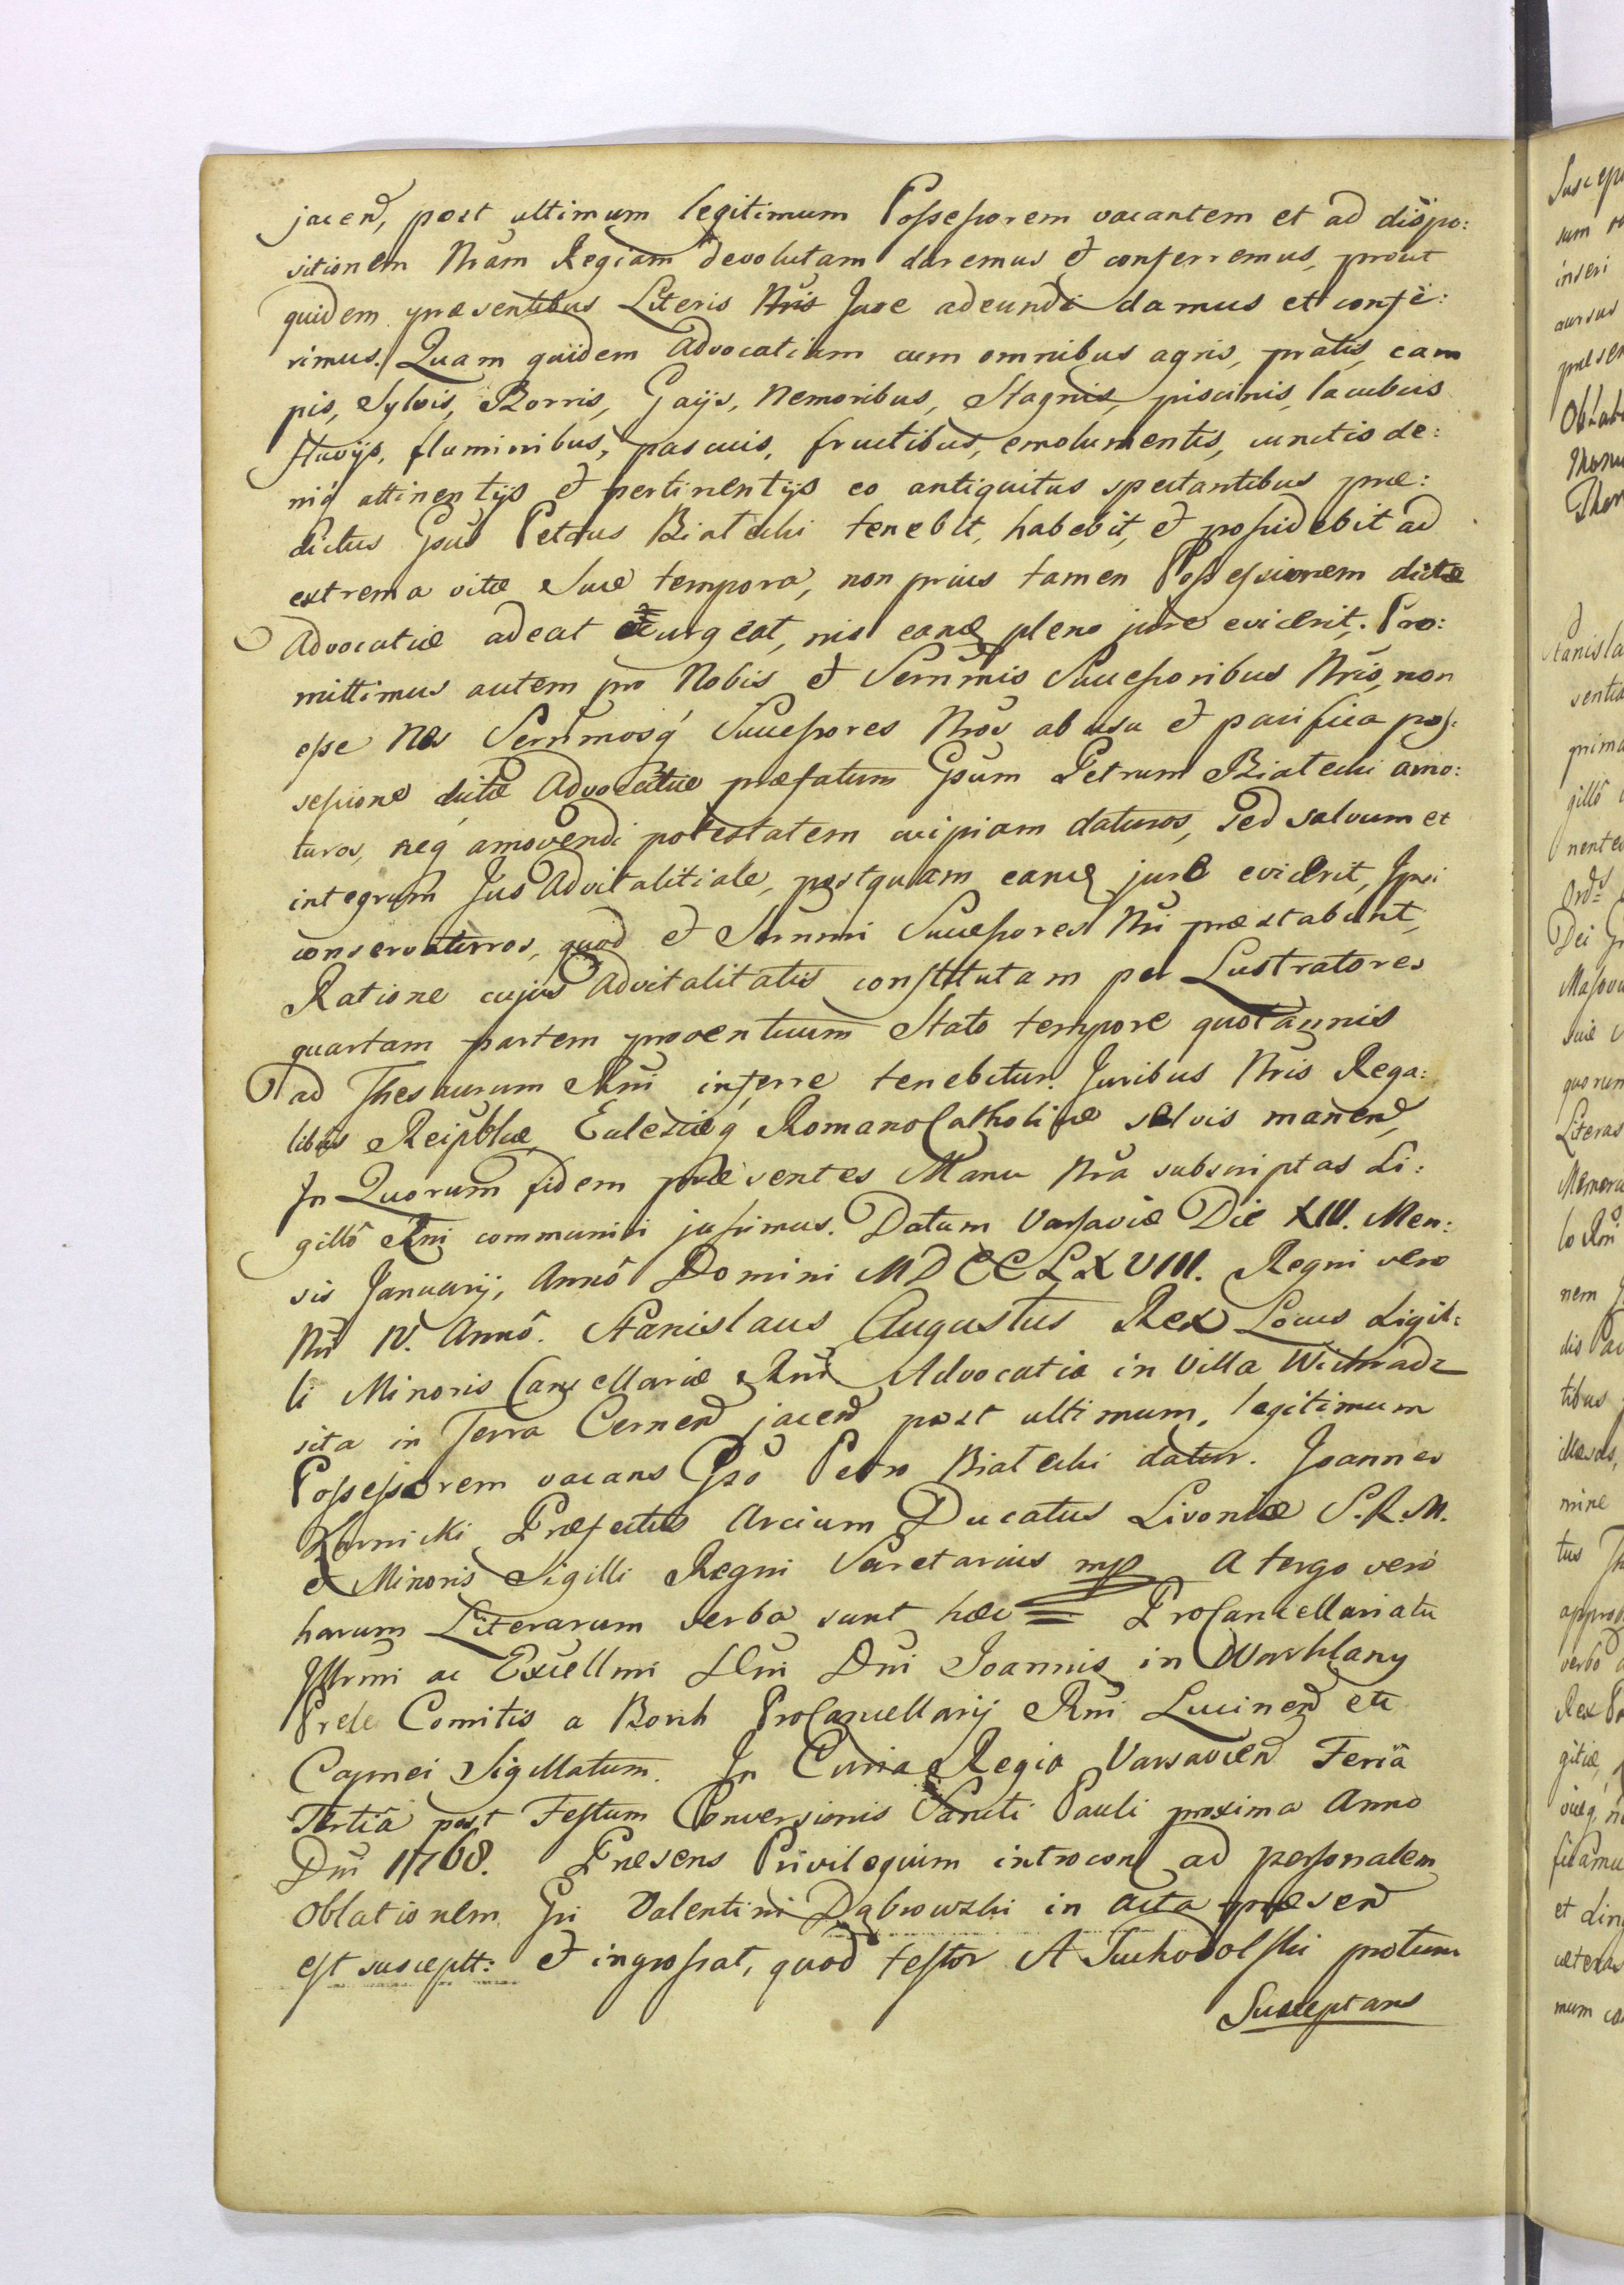 jacen̄, post ultimum legitimum Possessorem vacantem et ad dispo:
sitionem Nrãm Regiam devolutam daremus et conferremus, prout
quidem præsentibus Literis Nris Jure adeundi damus et confe:
rimus. Quam quidem Advocatiam cum omnibus agris, pratis, cam
pis, Sylvis, Borris, Gaijs, Nemoribus, Stagnis, piscinis, lacubus
fluvijs, fluminibus, pascuis, fructibus, emolumentis, cunctis de:
niq́ attinentijs et pertinentijs eo antiquitus spectantibus præ:
dictus Gsus Petrus Białecki tenebit, habebit, et possidebit ad
extrema vitæ Suæ tempora, non prius tamen Possessionem dictæ
Advocatiæ adeat urgeat, nisi eanq pleno jure evicerit. Pro:
mittimus autem pro Nobis et Sernmis Successoribus Nris, non
esse Nos Sernmosq́ Successores Nros ab usu et pacifica pos:
sessione dictæ Advocatiæ præfatum Gsum Petrum Białecki amo:
turos, neq amovendi potestatem cuipiam daturos, Sed salvum et
integrum Jus Advitalitiale, postquam eanq jure evicerit, Ipsi
conservaturos, quod et Sernmi Successores Nri præstabunt,
Ratione cujus Advitalitatis constitutam per Lustratores
quartam partem proventuum Stato tempore quotannis
ad Thesaurum Rni inferre tenebitur. Juribus Nris Rega:
libus Reipblcæ Eclesiæq́ Romano Catholicæ salvis manen̄,
In Quorum fidem præsentes Manu Nra subscriptas Si:
gillô Rni communiri jussimus. Datum Varsaviæ Die XIII. Men:
sis Januarij, Annô Domini MDCCLXVIII. Regni vero
Nri IV. Annô. Stanislaus Augustus Rex Locus Sigil:
li Minoris Cancellariæ Rni. Advocatia in Villa Wichradz
sita in Terra Cernen̄ jacen̄ post ultimum, legitimum
Possessorem vacans Gsô Petro Białecki datur. Joannes
Karnicki Præfectus Arcium Ducatus Livoniæ S.R.M.
et Minoris Sigilli Regni Secretarius mp A tergo verò
harum Literarum verba sunt hæc = ProCancellariatu
Illrmi ac Excellmi Dni Dni Joannis in Warklany
Prele Comitis a Borch ProCancellarij Rni Lucinen̄ etc
Capnei Sigillatum. In Curia Regia Varsavien̄ Feriâ
Tertiâ post Festum Conversionis Sancti Pauli proxima Anno
Dni 1768. Præsens Privilegium introcon ad personalem
Oblationem Gsi Valentini Dąbrowski in Acta præsen̄
est susceptt: et ingrossat, quod testor A Suchodolski protunc
Susceptans